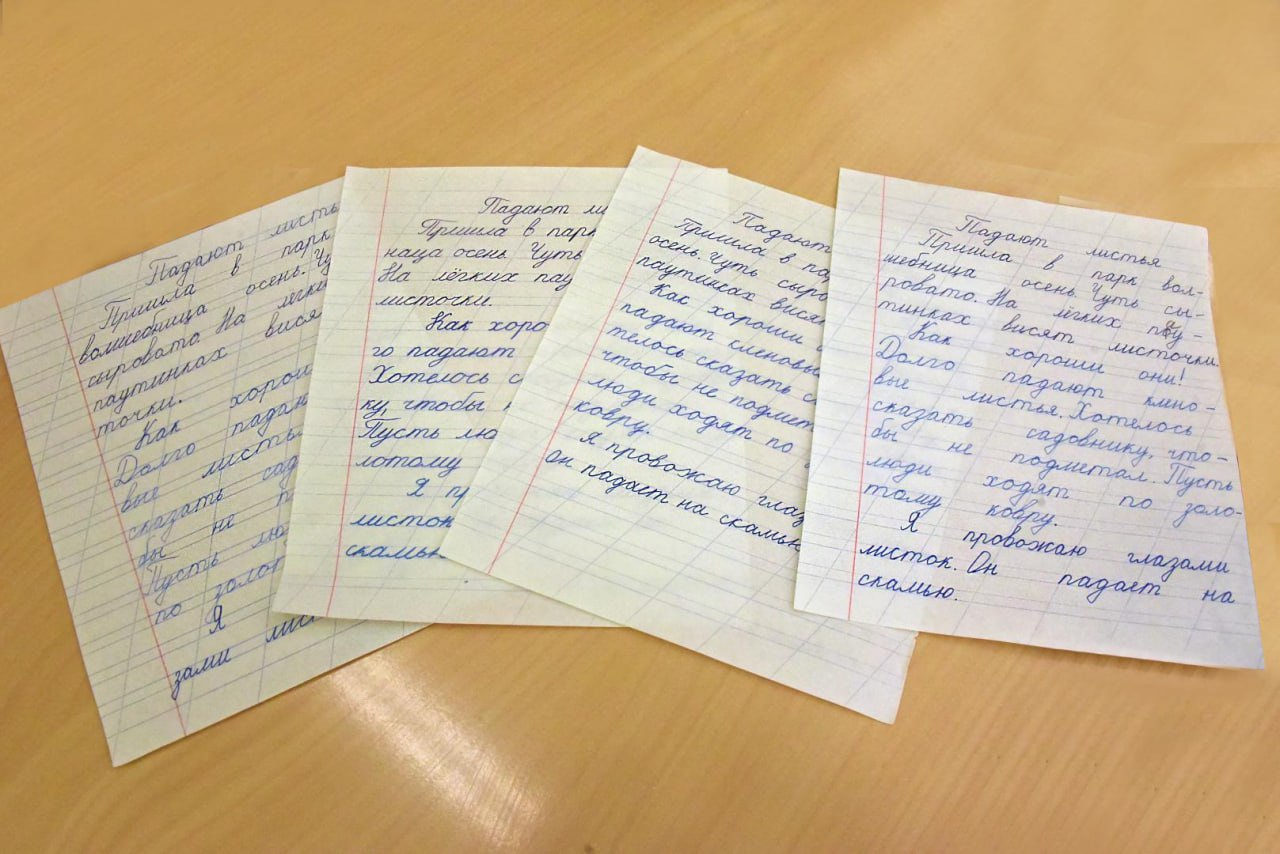 Падают листь
Пришла в парк
волшебница осень. Чу
сыровато. На лёгки
паутинках вися
точки.
Как хорош
Долго падаю
вые листь
сказать сад
бы не п
Пусть лю
по золо
Я
зами лис
Падают ли
Пришла в парк
ница осень. Чуть
На лёгких пау
листочки.
Как хоро
го падают
Хотелось с
ку, чтобы
Пусть лю
лотому
Я пр
листок
скамью
Падают
Пришла в пар
осень. Чуть сыро
паутинках висят
Как хороши
падают кленовы
телось сказать с
чтобы не подмет
люди ходят по
ковру.
Я провожаю глаз
Он падает на скамью
Падают листья
Пришла в парк вол-
шебница осень. Чуть сы-
ровато. На лёгких пау-
тинках висят листочки.
Как хороши они!
Долго падают клено-
вые листья. Хотелось
сказать садовнику, что-
бы не подметал. Пусть
люди ходят по золо-
тому ковру.
Я провожаю глазами
листок. Он падает на
скамью.